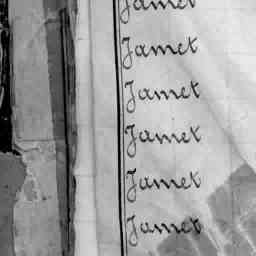 Jamet
Jamet
Jamet
Jamet
Jamet
Jamet